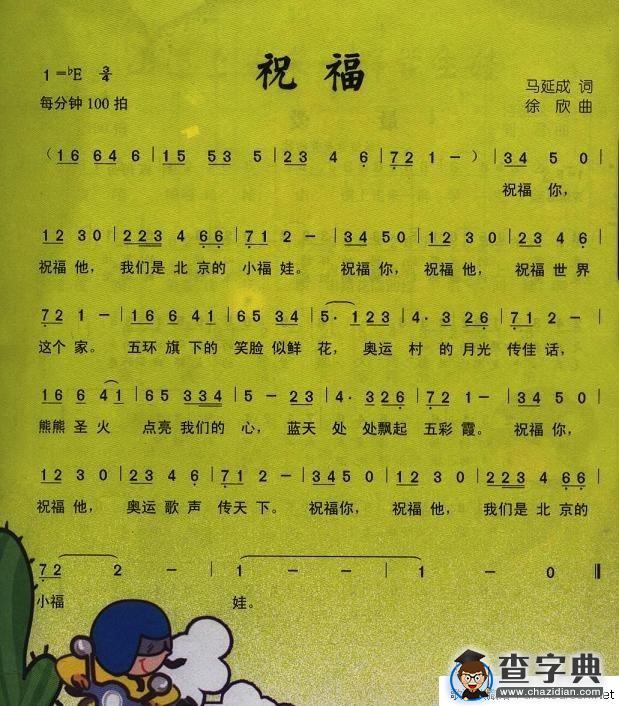 祝福
1=♭E 3/4
马延成 词
每分钟100拍
徐欣 曲
(16 646 | 15 53 5 | 23 4 6 | 72 1 -) | 34 5 0 |
祝福 你,
12 3 0 | 223 4 66 | 71 2 - | 34 5 0 | 12 3 0 | 23 4 6 |
祝福 他, 我们是 北 京的 小福 娃。 祝福 你, 祝福 他, 祝福 世 界
72 1 - | 16 6 41 | 65 5 34 | 5· 123 | 4· 326 | 71 2 - |
这个 家。 五环 旗 下的 笑脸 似鲜 花, 奥运 村 的月光 传佳 话,
16 6 41 | 65 5 334 | 5 - 23 | 4· 326 | 71 2 - | 34 5 0 |
熊熊 圣 火 点亮 我们的 心, 蓝天 处 处飘起 五彩 霞。 祝福 你,
12 3 0 | 23 4 6 | 71 2 - | 34 5 0 | 12 3 0 | 223 4 66 |
祝福 他, 奥运 歌 声 传天 下。 祝福 你, 祝福 他, 我们是 北 京的
72 2 - | 1 - - | 1 - 0 ‖
小福 娃。
查字典
www.chazidian.com